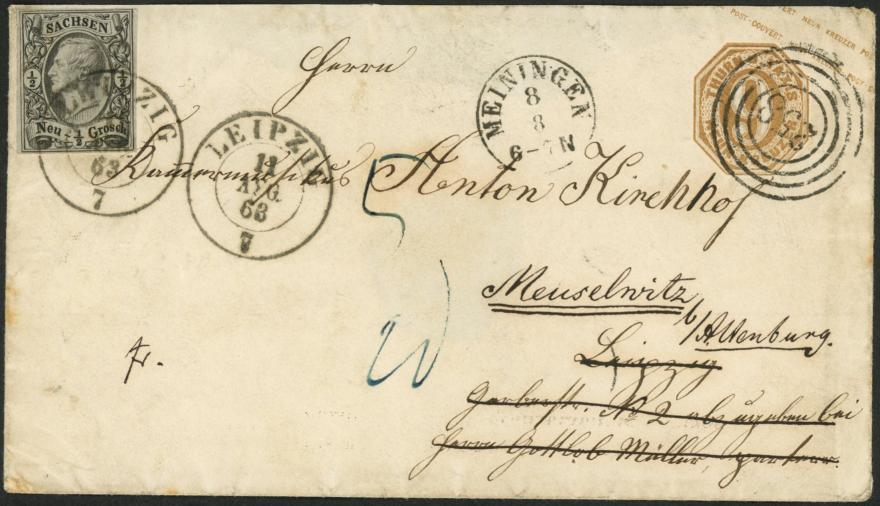 SACHSEN
½ ½
Neu-½-Grosch
LEIPZIG
63
7
LEIPZIG
12
AUG.
63
7
MEININGEN
8
8
6-7N
POST-COUVERT
NEUN KREUZER
THURN
Herrn
Kammermusikus Anton Kirchhof
5
Meuselwitz
b/Altenburg.
Leipzig
Gerberstr. No 2 abzugeben bei
Herrn Gottlob Müller, parterre.
fr.